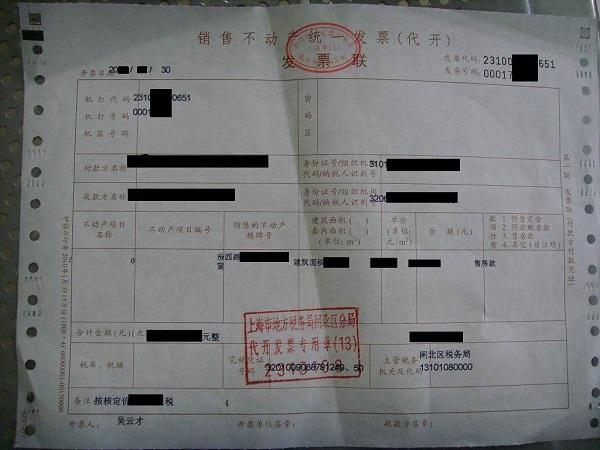 销售不动产统一发票(代开)
发票联
发票代码: 23100 651
发票号码: 00017
开票日期: 20 30
机打代码 2310 0651
机打号码 0001
机器号码
密码区
付款方名称
身份证号/组织机构代码/纳税人识别号 3101
收款方名称
身份证号/组织机构代码/纳税人识别号 3206
不动产项目名称
不动产项目编号
销售的不动产楼牌号
建筑面积( )
套内面积( )
(单位: m²)
单价(单位: 元/m²)
金额(元)
款项性质
1. 预售定金
2. 预收购房款
3. 售房款
4. 其它(请注明)
0
汾西路
室
建筑面积
售房款
合计金额(元)(大 元整
税率、税额
完税凭证号码
主管税务机关及代码
闸北区税务局
13101080000
上海市地方税务局闸北区分局
代开发票专用章(13)
备注 按核定价 税 4
开票人: 吴云才
开票单位签章:
收款方签章:
第一联 发票联(付款方付款凭证)